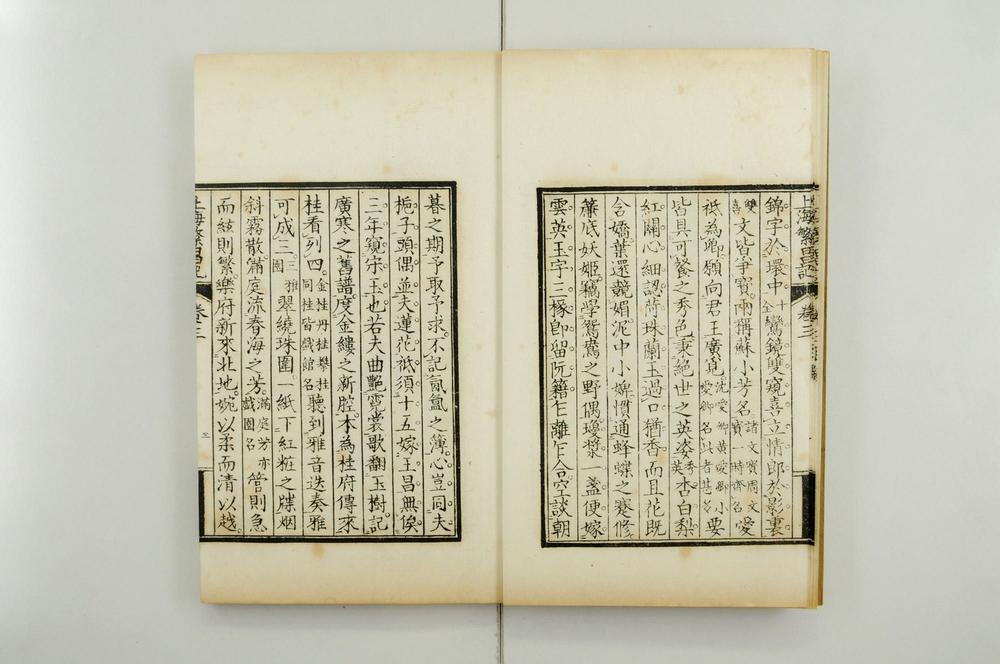 上海繁昌記 卷三
錦字於環中十全鸞鏡雙窺喜立情郎於影裏
雙喜文皆爭寶兩稱蘇小芳名諸文寶周文寶一時齊名愛
祇為卿願向君王廣覓沈愛卿黃愛卿名此者甚多小要
皆具可餐之秀色秉絕世之英姿秀英杏白梨
紅關心細認荷珠蘭玉過口猶香而且花既
含嬌葉還競媚泥中小婢慣通蜂蝶之蹇修
簾底妖姬竊學鴛鴦之野偶瓊漿一盞便嫁
雲英玉字三椽卽留阮籍乍離乍合空談朝
暮之期予取予求不記氤氳之簿心豈同夫
梔子頭偶並夫蓮花祇須十五嫁王昌無俟
三年窺宋玉也若夫曲艷霓裳歌翻玉樹記
廣寒之舊譜度金縷之新腔本為桂府傳來
桂看列四金桂丹桂攀桂同桂皆戲館名聽到雅音迭奏雅
可成三三雅園翠繞珠圍一紙下紅粧之牒烟
斜霧散滿庭流春海之芳滿庭芳亦戲園名管則急
而絃則繁樂府新來北地婉以柔而清以越
上海繁昌記 卷三 三